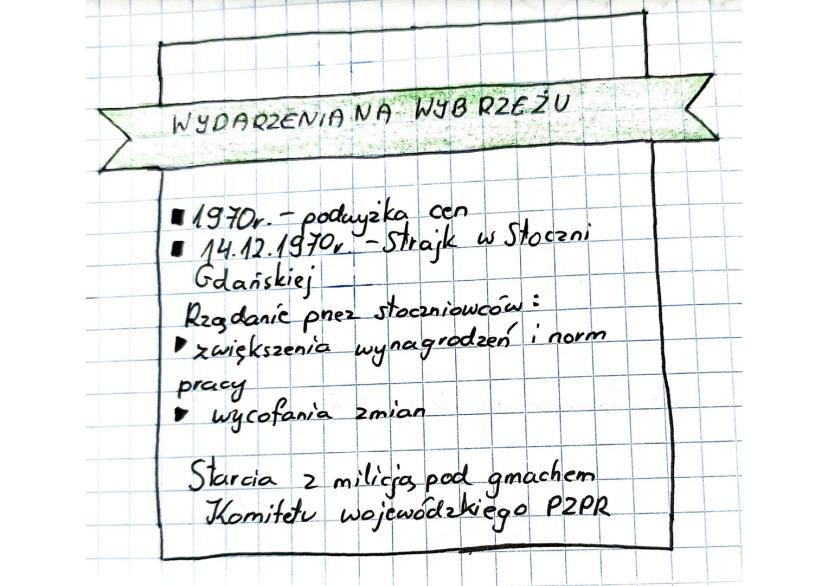 WYDARZENIA NA WYBRZEŻU
▪ 1970r. - podwyżka cen
▪ 14.12.1970r. - Strajk w Stoczni
Gdańskiej
Rządanie przez stoczniowców:
▸ zwiększenia wynagrodzeń i norm
pracy
▸ wycofania zmian
Starcia z milicją pod gmachem
Komitetu wojewódzkiego PZPR